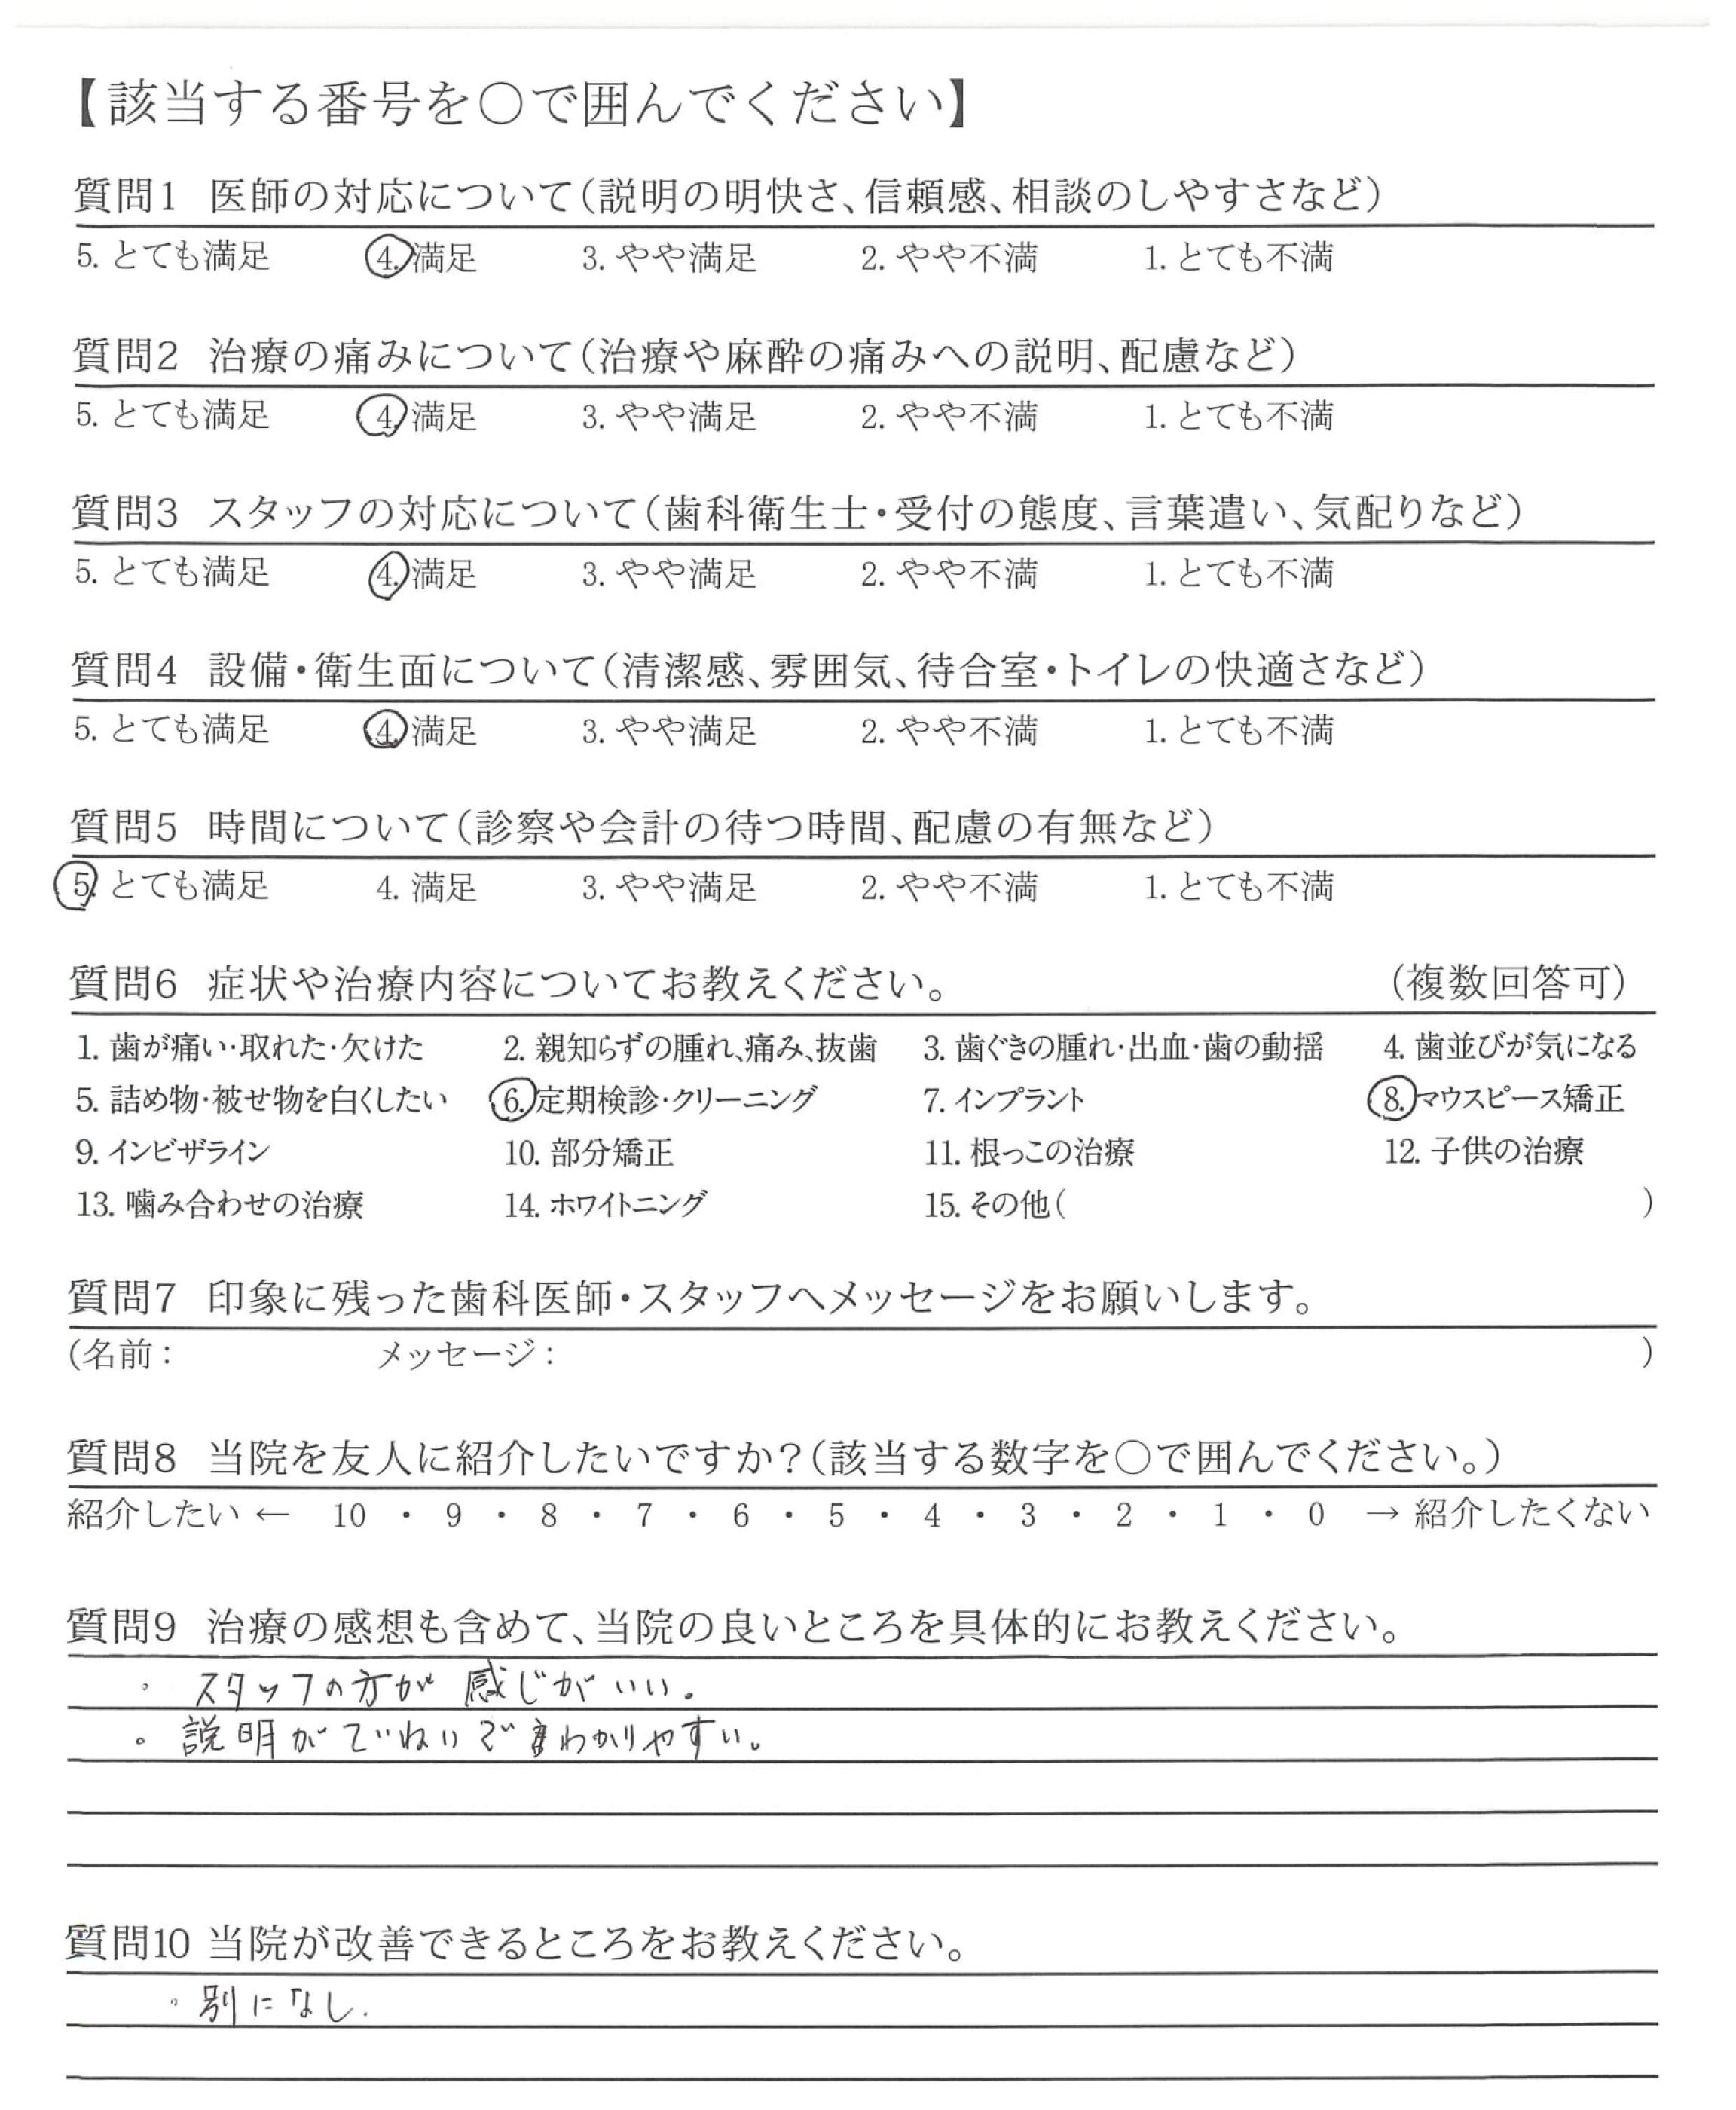 【該当する番号を○で囲んでください】
質問1 医師の対応について(説明の明快さ、信頼感、相談のしやすさなど)
5. とても満足 4. 満足 3. やや満足 2. やや不満 1. とても不満
質問2 治療の痛みについて(治療や麻酔の痛みへの説明、配慮など)
5. とても満足 4. 満足 3. やや満足 2. やや不満 1. とても不満
質問3 スタッフの対応について(歯科衛生士・受付の態度、言葉遣い、気配りなど)
5. とても満足 4. 満足 3. やや満足 2. やや不満 1. とても不満
質問4 設備・衛生面について(清潔感、雰囲気、待合室・トイレの快適さなど)
5. とても満足 4. 満足 3. やや満足 2. やや不満 1. とても不満
質問5 時間について(診察や会計の待つ時間、配慮の有無など)
5. とても満足 4. 満足 3. やや満足 2. やや不満 1. とても不満
質問6 症状や治療内容についてお教えください。 (複数回答可)
1. 歯が痛い・取れた・欠けた 2. 親知らずの腫れ、痛み、抜歯 3. 歯ぐきの腫れ・出血・歯の動揺 4. 歯並びが気になる
5. 詰め物・被せ物を白くしたい 6. 定期検診・クリーニング 7. インプラント 8. マウスピース矯正
9. インビザライン 10. 部分矯正 11. 根っこの治療 12. 子供の治療
13. 噛み合わせの治療 14. ホワイトニング 15. その他( )
質問7 印象に残った歯科医師・スタッフへメッセージをお願いします。
(名前: メッセージ: )
質問8 当院を友人に紹介したいですか?(該当する数字を○で囲んでください。)
紹介したい ← 10 ・ 9 ・ 8 ・ 7 ・ 6 ・ 5 ・ 4 ・ 3 ・ 2 ・ 1 ・ 0 → 紹介したくない
質問9 治療の感想も含めて、当院の良いところを具体的にお教えください。
・ スタッフの方が 感じがいい。
・ 説明がていねいでわかりやすい。
質問10 当院が改善できるところをお教えください。
・ 別になし.